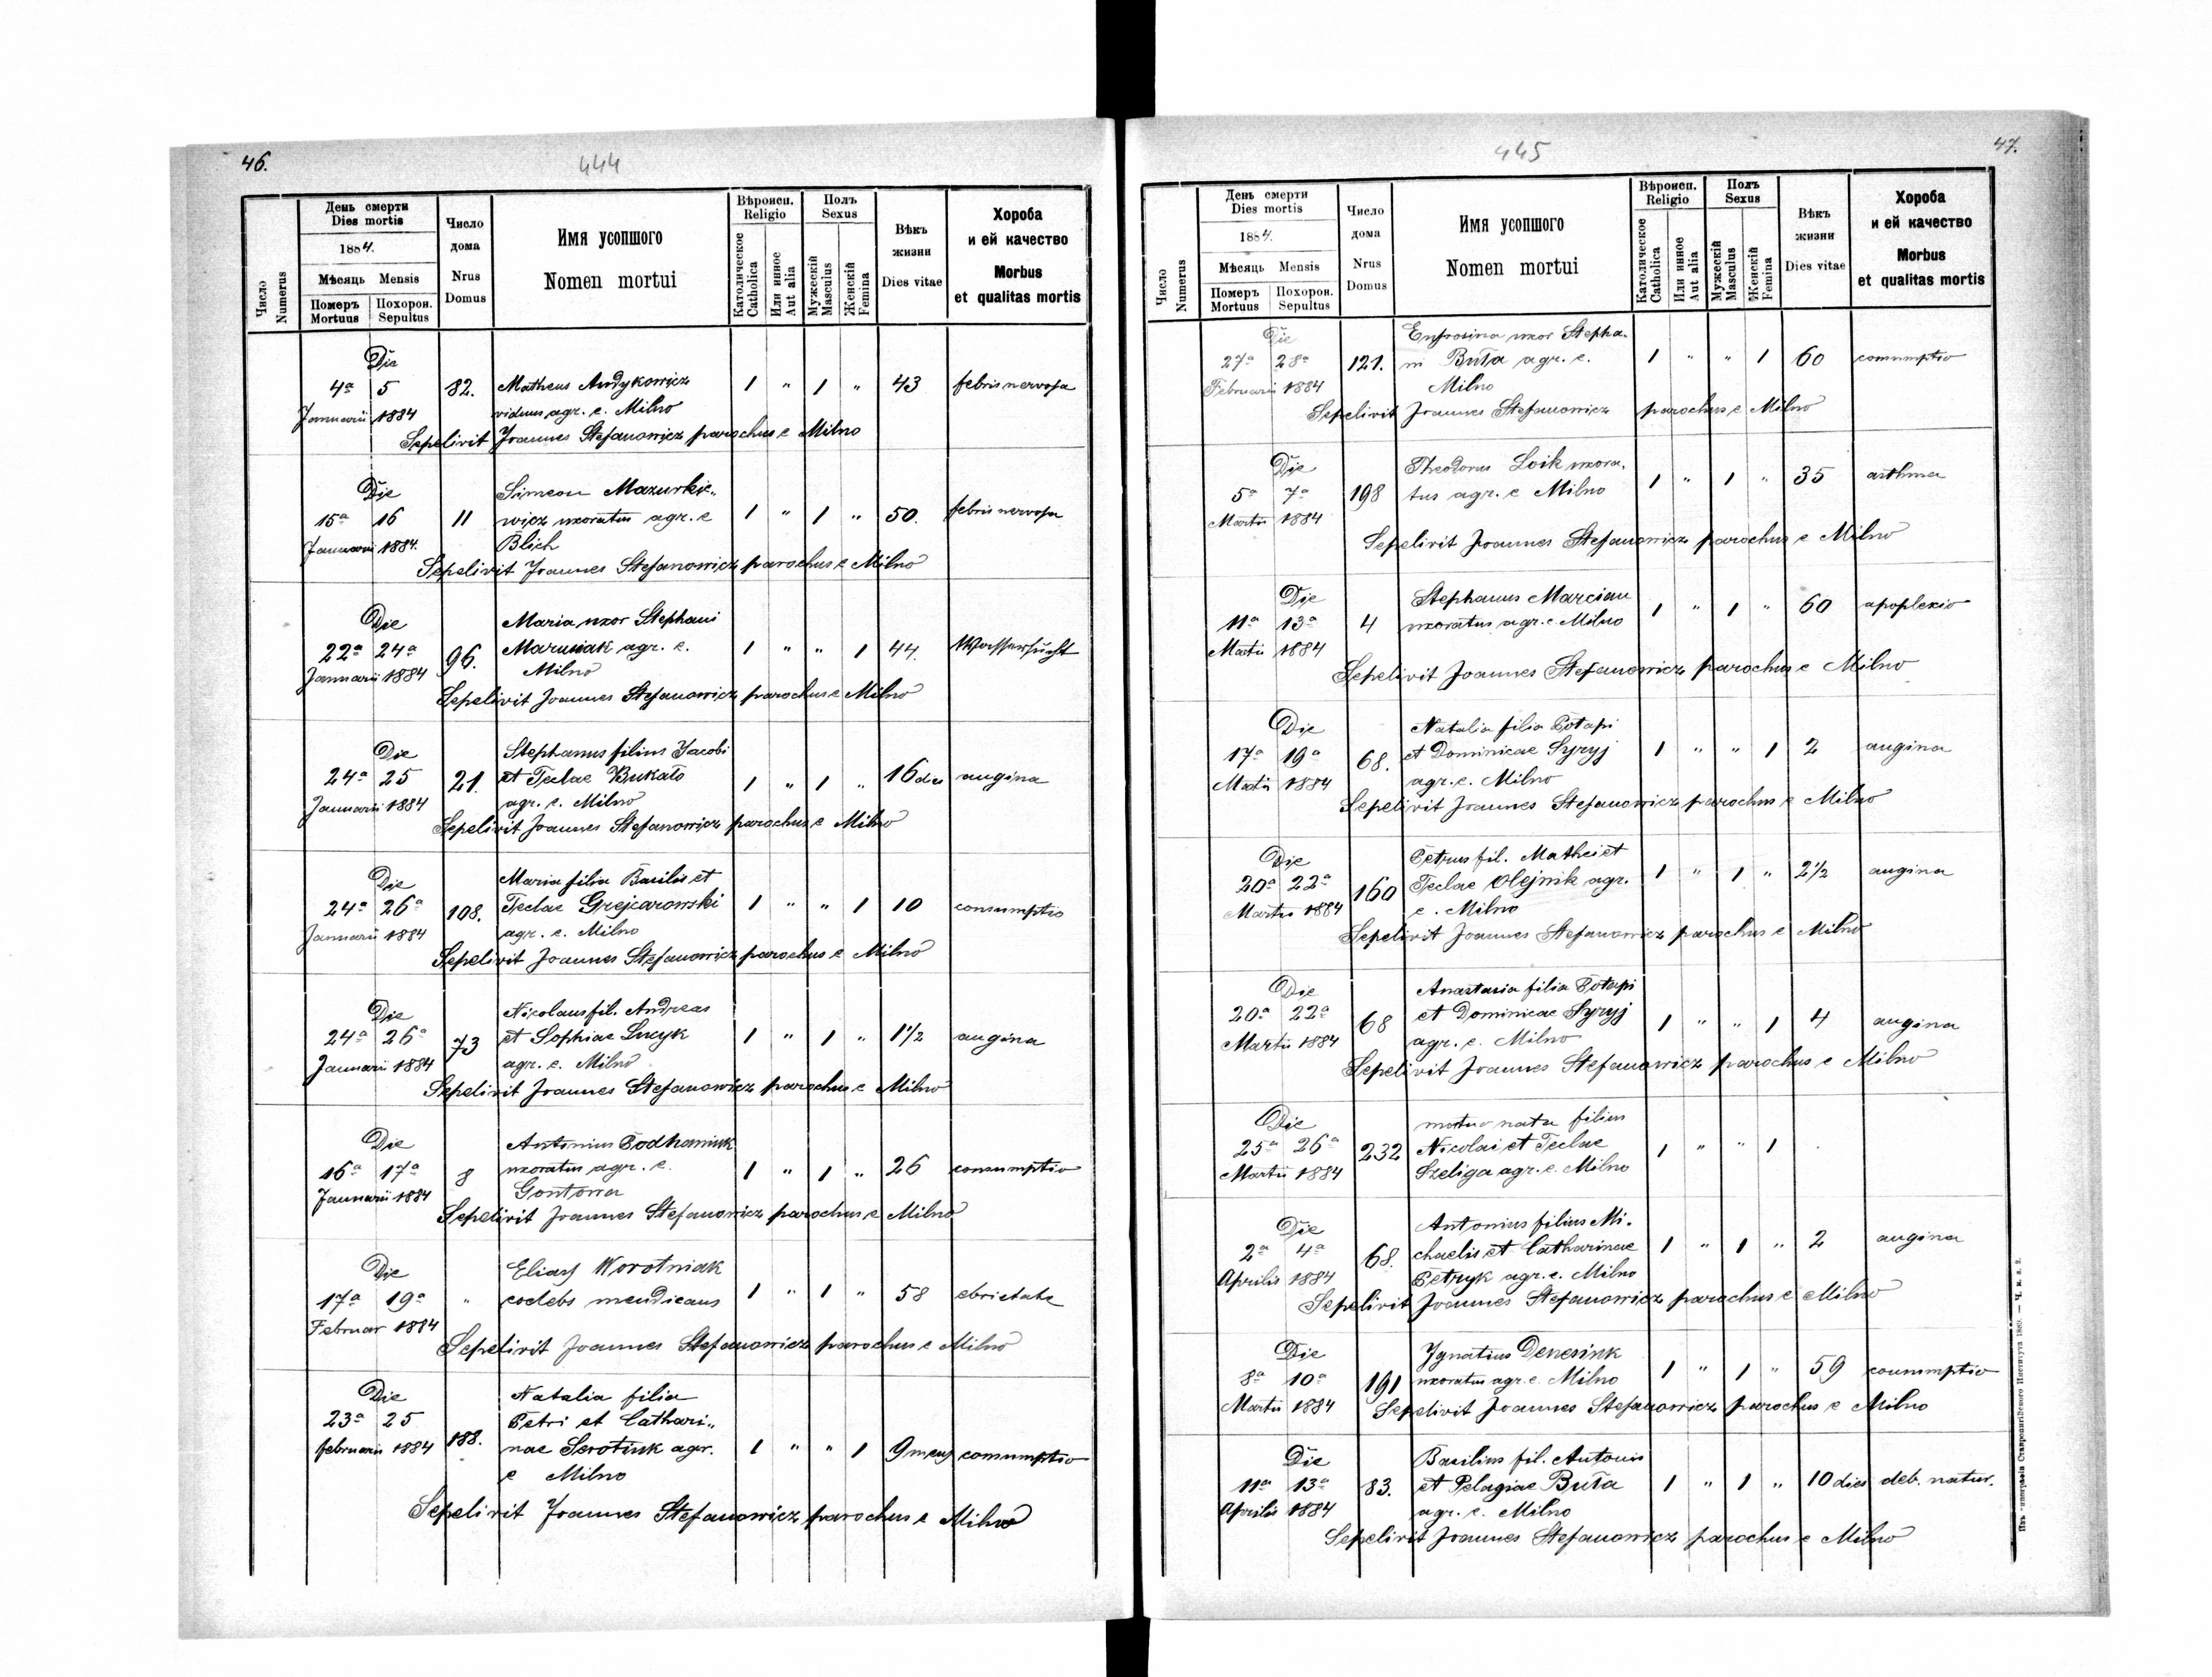 46.
444
Число
Numerus
День смерти
Dies mortis
1884.
Мѣсяць Mensis
Померъ Похорон.
Mortuus Sepultus
Число
дома
Nrus
Domus
Имя усопшого
Nomen mortui
Вѣроисп.
Religio
Католическое
Catholica
Или инное
Aut alia
Полъ
Sexus
Мужескій
Masculus
Женскій
Femina
Вѣкъ
жизни
Dies vitae
Хороба
и ей качество
Morbus
et qualitas mortis
Die
4a 5 82. Matheus Andykowicz 1 " 1 " 43 febris nervosa
Januarii 1884 viduus agr. e. Milno
Sepelivit Joannes Stefanowicz parochus e Milno
Die Simeon Mazurkie„
15a 16 11 wicz uxoratus agr. e 1 " 1 " 50. febris nervosa
Januarii 1884. Blich
Sepelivit Joannes Stefanowicz parochus e Milno
Die Maria uxor Stephani
22a 24a 96. Maruniak agr. e. 1 " " 1 44. Wassersucht
Januarii 1884 Milno
Sepelivit Joannes Stefanowicz parochus e Milno
Die Stephanus filius Jacobi
24a 25 21. et Teclae Bukało 1 " 1 " 16 dies angina
Januarii 1884 agr. e. Milno
Sepelivit Joannes Stefanowicz parochus e Milno
Die Maria filia Basilii et
24a 26a 108. Teclae Grejcarowski 1 " " 1 10 consumptio
Januarii 1884 agr. e. Milno
Sepelivit Joannes Stefanowicz parochus e Milno
Die Nicolaus fil. Andreas
24a 26a 73 et Sophiae Lucyk 1 " 1 " 1 1/2 angina
Januarii 1884 agr. e. Milno
Sepelivit Joannes Stefanowicz parochus e Milno
Die Antonius Podhaniuk
16a 17a 8 uxoratus agr. e. 1 " 1 " 26 consumptio
Januarii 1884 Gontowa
Sepelivit Joannes Stefanowicz parochus e Milno
Die Elias Worotniak
17a 19a " coelebs mendicans 1 " 1 " 58 ebrietate
Februar 1884
Sepelivit Joannes Stefanowicz parochus e Milno
Die Natalia filia
23a 25 Petri et Cathari„
februarii 1884 188. nae Serotiuk agr. 1 " " 1 9 mens consumptio
e Milno
Sepelivit Joannes Stefanowicz parochus e Milno
445
47.
Число
Numerus
День смерти
Dies mortis
1884.
Мѣсяць Mensis
Померъ Похорон.
Mortuus Sepultus
Число
дома
Nrus
Domus
Имя усопшого
Nomen mortui
Вѣроисп.
Religio
Католическое
Catholica
Или инное
Aut alia
Полъ
Sexus
Мужескій
Masculus
Женскій
Femina
Вѣкъ
жизни
Dies vitae
Хороба
и ей качество
Morbus
et qualitas mortis
Die Eufrosina uxor Stepha-
27a 28a 121. ni Buła agr. e. 1 " " 1 60 consumptio
Februarii 1884 Milno
Sepelivit Joannes Stefanowicz parochus e Milno
Die Theodorus Loik uxora-
5a 7a 198 tus agr. e Milno 1 " 1 " 35 asthma
Martii 1884
Sepelivit Joannes Stefanowicz parochus e Milno
Die Stephanus Marcian
11a 13a 4 uxoratus agr. e. Milno 1 " 1 " 60 apoplexio
Martii 1884
Sepelivit Joannes Stefanowicz parochus e Milno
Die Natalia filia Potapi
17a 19a 68. et Dominicae Syryj 1 " " 1 2 angina
Martii 1884 agr. e. Milno
Sepelivit Joannes Stefanowicz parochus e Milno
Die Petrus fil. Mathei et
20a 22a 160 Teclae Olejnik agr. 1 " 1 " 2 1/2 angina
Martii 1884 e. Milno
Sepelivit Joannes Stefanowicz parochus e Milno
Die Anastasia filia Potapi
20a 22a 68 et Dominicae Syryj 1 " " 1 4 angina
Martii 1884 agr. e. Milno
Sepelivit Joannes Stefanowicz parochus e Milno
Die nata filius
25a 26a 232 Nicolai et Teclae 1 " " 1
Martii 1884 Szeliga agr. e. Milno
Die Antonius filius Mi-
2a 4a 68. chaelis et Catharinae 1 " 1 " 2 angina
Aprilis 1884 Petryk agr. e. Milno
Sepelivit Joannes Stefanowicz parochus e Milno
Die Ignatius Denesiuk
8a 10a 191 uxoratus agr. e. Milno 1 " 1 " 59 consumptio
Martii 1884 Sepelivit Joannes Stefanowicz parochus e Milno
Die Basilius fil. Antonii
11a 13a 83. et Pelagiae Buła 1 " 1 " 10 dies deb. natur.
Aprilis 1884 agr. e. Milno
Sepelivit Joannes Stefanowicz parochus e Milno